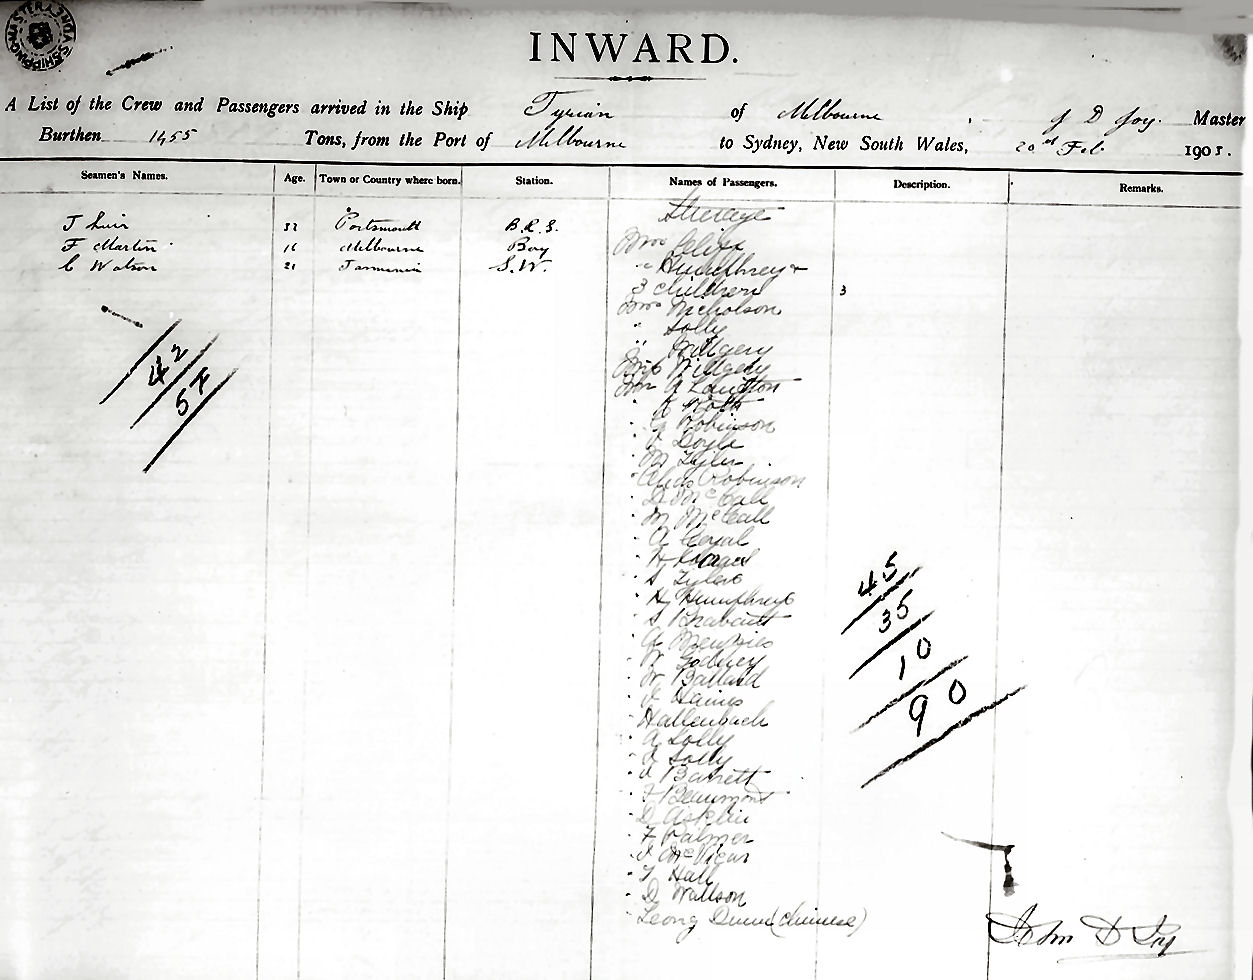 SHIPPING MASTER SYDNEY
INWARD.
A List of the Crew and Passengers arrived in the Ship Tyrian of Melbourne, J D Joy. Master
Burthen 1455 Tons, from the Port of Melbourne to Sydney, New South Wales, 20th Feb 1905.
Seamen's Names. Age. Town or Country where born. Station. Names of Passengers. Description. Remarks.
Steerage
J 32 Portsmouth B.R.S.
F Martin 16 Melbourne Boy
C Watson 21 Tasmania S.W.
Mrs
" Humphrey &
3 children 3
Mrs Nicholson
" Solly
"
Miss
Mr A
"
" G Robinson
" V Doyle
" M Tyler
" Chas Robinson
" D McCall
" M McCall
" A
" H
" S Tyler
" H Humphreys
" S
" A Menzies
" W Godney
" W Ballard
" V Haines
" Hallenbach
" A Solly
" A Solly
" J Barrett
" F Beaumont
" D
" F Palmer
" J McVicar
" T Hall
" D Wattson
Leong (Chinese)
42
57
45
35
10
90
John D Joy